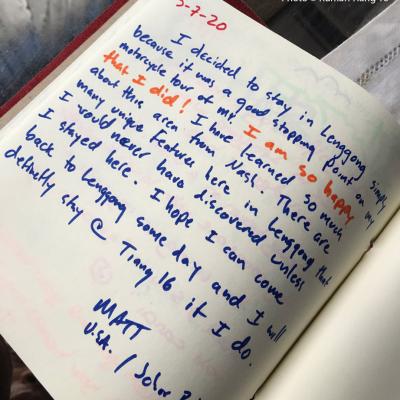 Photo ©
5-7-20
I decided to stay in Lenggong simply
because it was a good stopping point on my
motorcycle tour of MY. I am so happy
that I did! I have learned so much
about this area from Nash. There are
many unique features here in Lenggong that
I would never have discovered unless
I stayed here. I hope I can come
back to Lenggong some day and I will
definetly stay @ Tiang 16 if I do.
MATT
U.S.A. / Johor